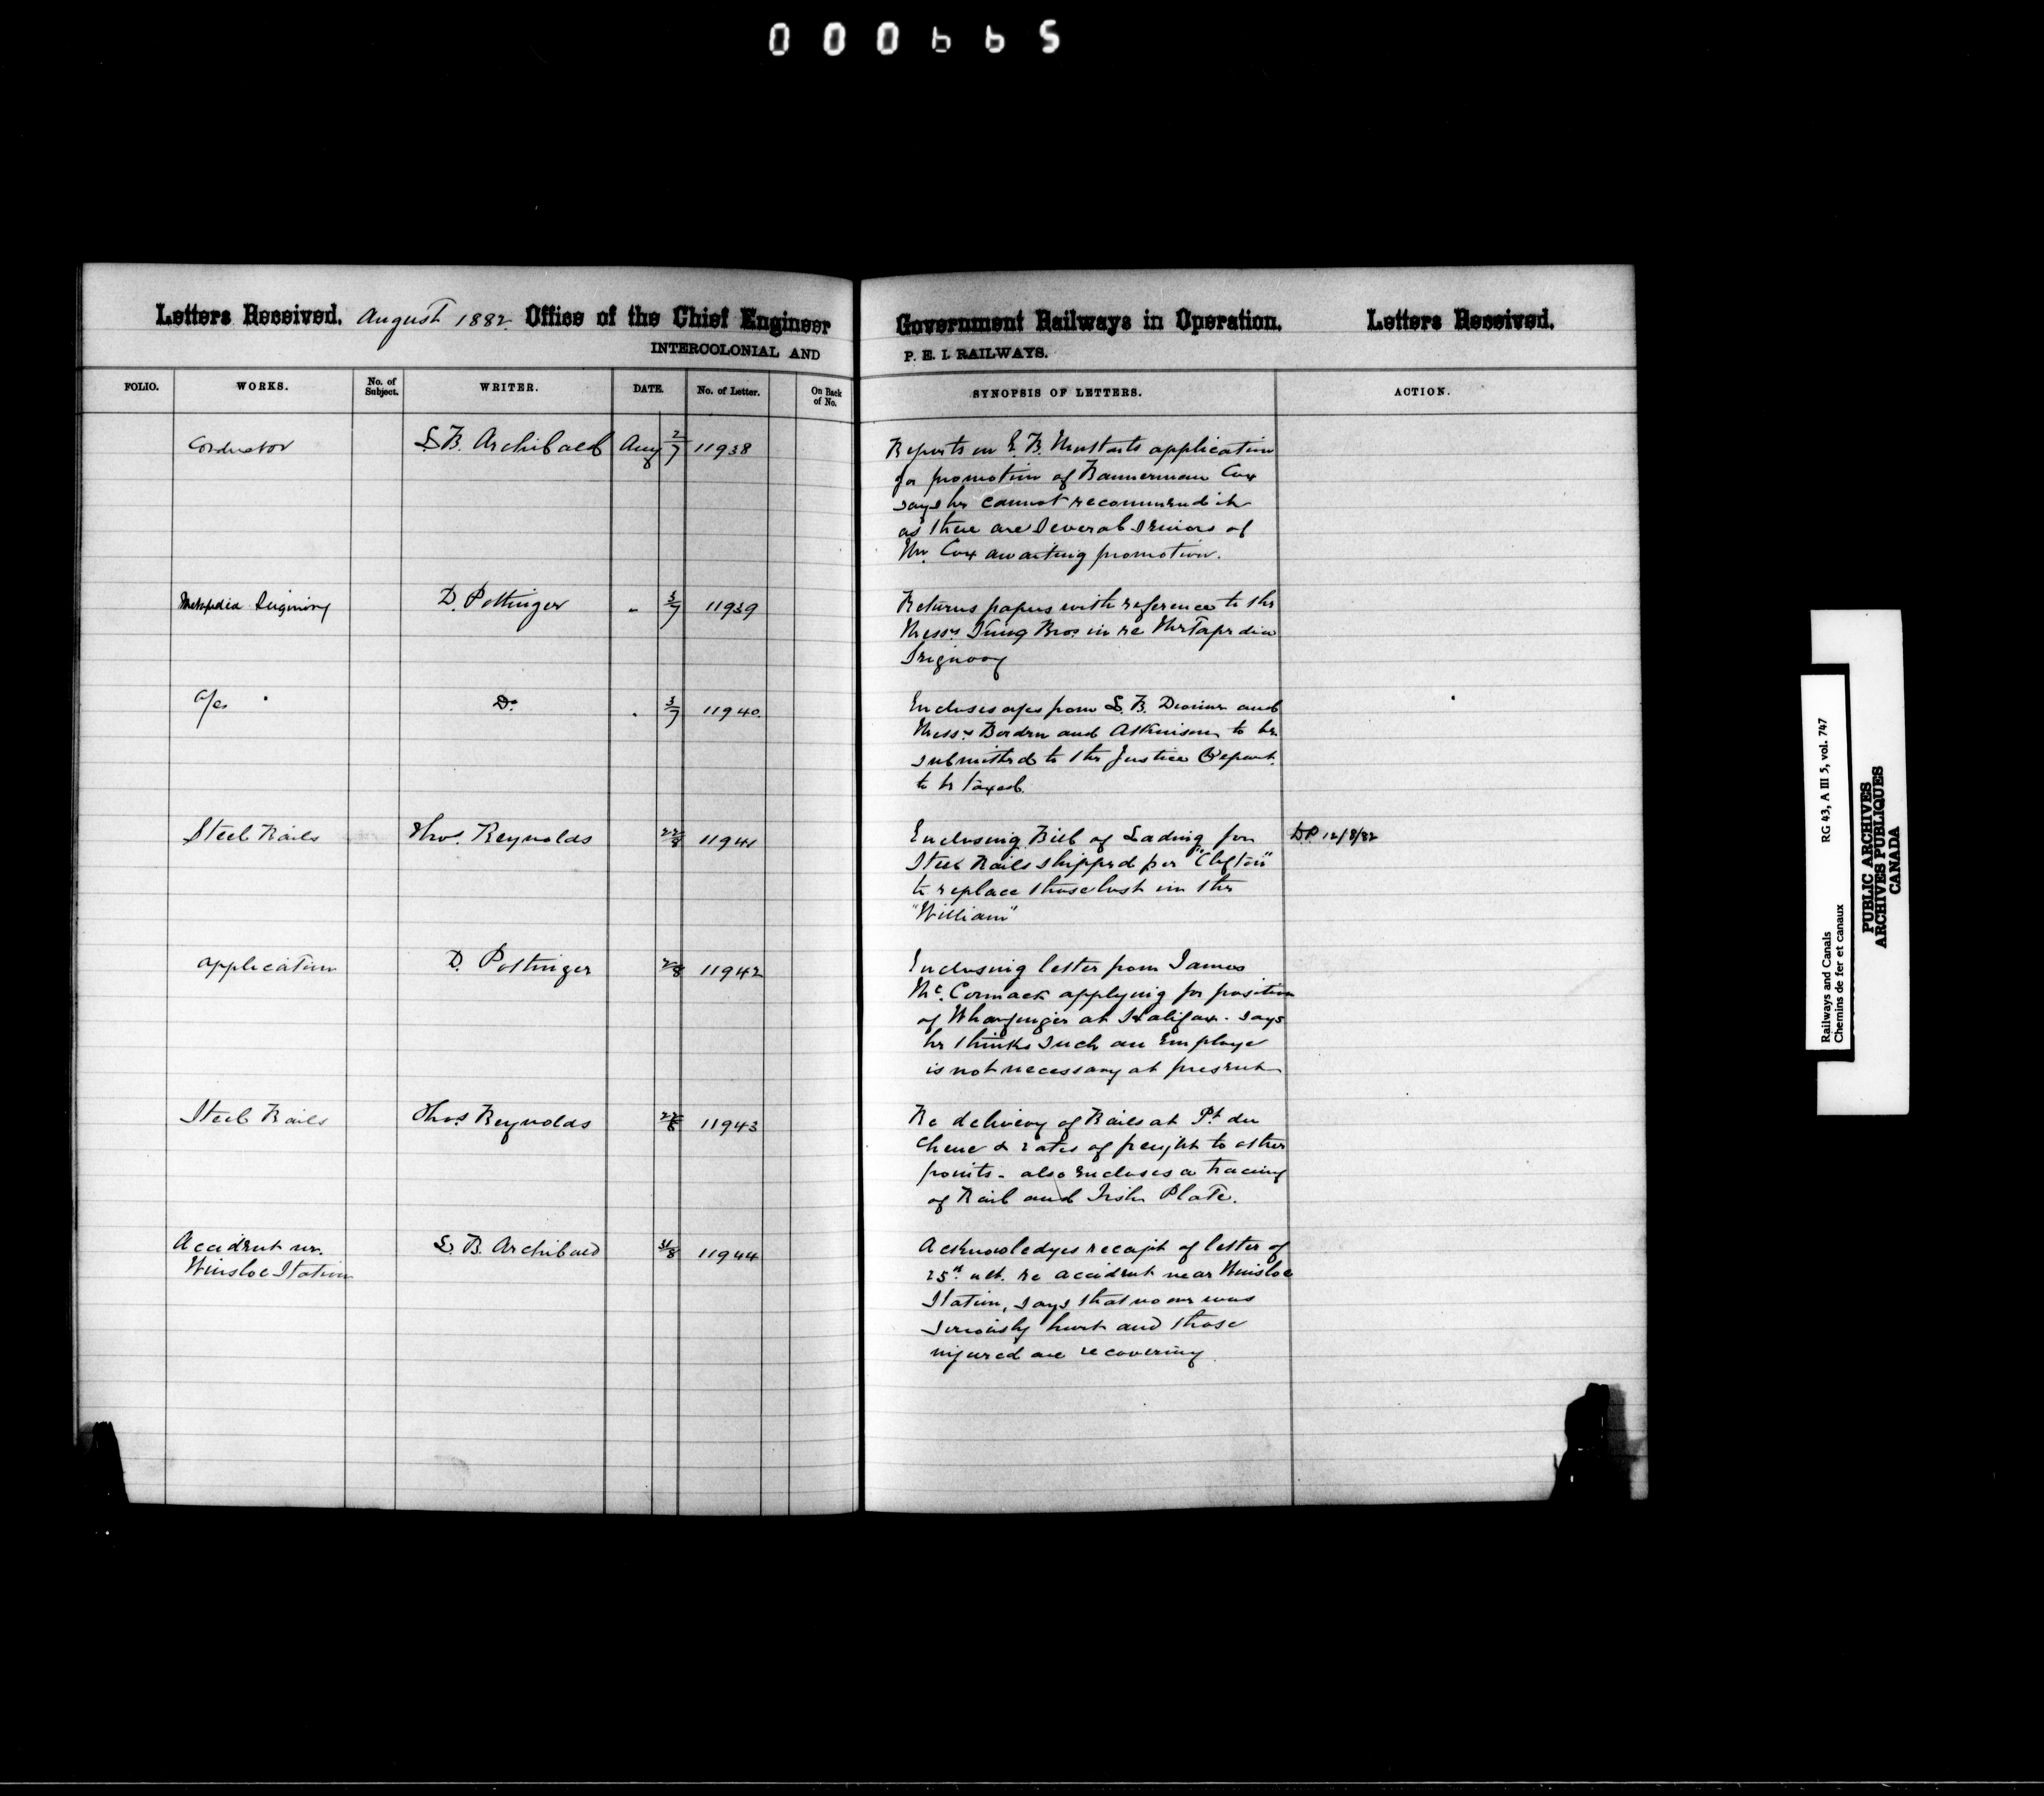 000665
Letters Received. August 1882. Office of the Chief Engineer Government Railways in Operation. Letters Received.
INTERCOLONIAL AND P. E. I. RAILWAYS.
FOLIO. WORKS. No. of Subject. WRITER. DATE. No. of Letter. On Back of No. SYNOPSIS OF LETTERS. ACTION.
Conductor S.B. Archibald Aug 2/7 11938 Reports on E. B. application
for promotion of Bannerman Cox
says he cannot recommend it
as there are several seniors of
Mr. Cox awaiting promotion.
Metapedia D. Pottinger " 3/7 11939 Returns papers with reference to the
Messrs King Bros. in re Metapedia
a/cs " Do. " 3/7 11940. Encloses a/cs from S. B. and
Messrs Borden and Atkinson to be
submitted to the Justice Depart.
to be taxed.
Steel Rails Thos. Reynolds 22/8 11941 Enclosing Bill of Lading for DP 12/8/82
Steel Rails shipped per "Clifton"
to replace those lost in the
"William"
application D. Pottinger 2/8 11942 Enclosing letter from James
McCormack applying for position
of Wharfinger at Halifax. says
he thinks such an Employe
is not necessary at present
Steel Rails Thos. Reynolds 11943 Re delivery of Rails at Pt. du
Chene & rates of freight to other
points. also encloses a tracing
of Rail and Fish Plate.
Accident nr. S. B. Archibald 31/8 11944 Acknowledges receipt of letter of
Winsloe Station 25th ult. re accident near Winsloe
Station, says that no one was
seriously hurt and those
injured are recovering.
Railways and Canals RG 43, A III 5, vol. 747
Chemins de fer et canaux
PUBLIC ARCHIVES
ARCHIVES PUBLIQUES
CANADA